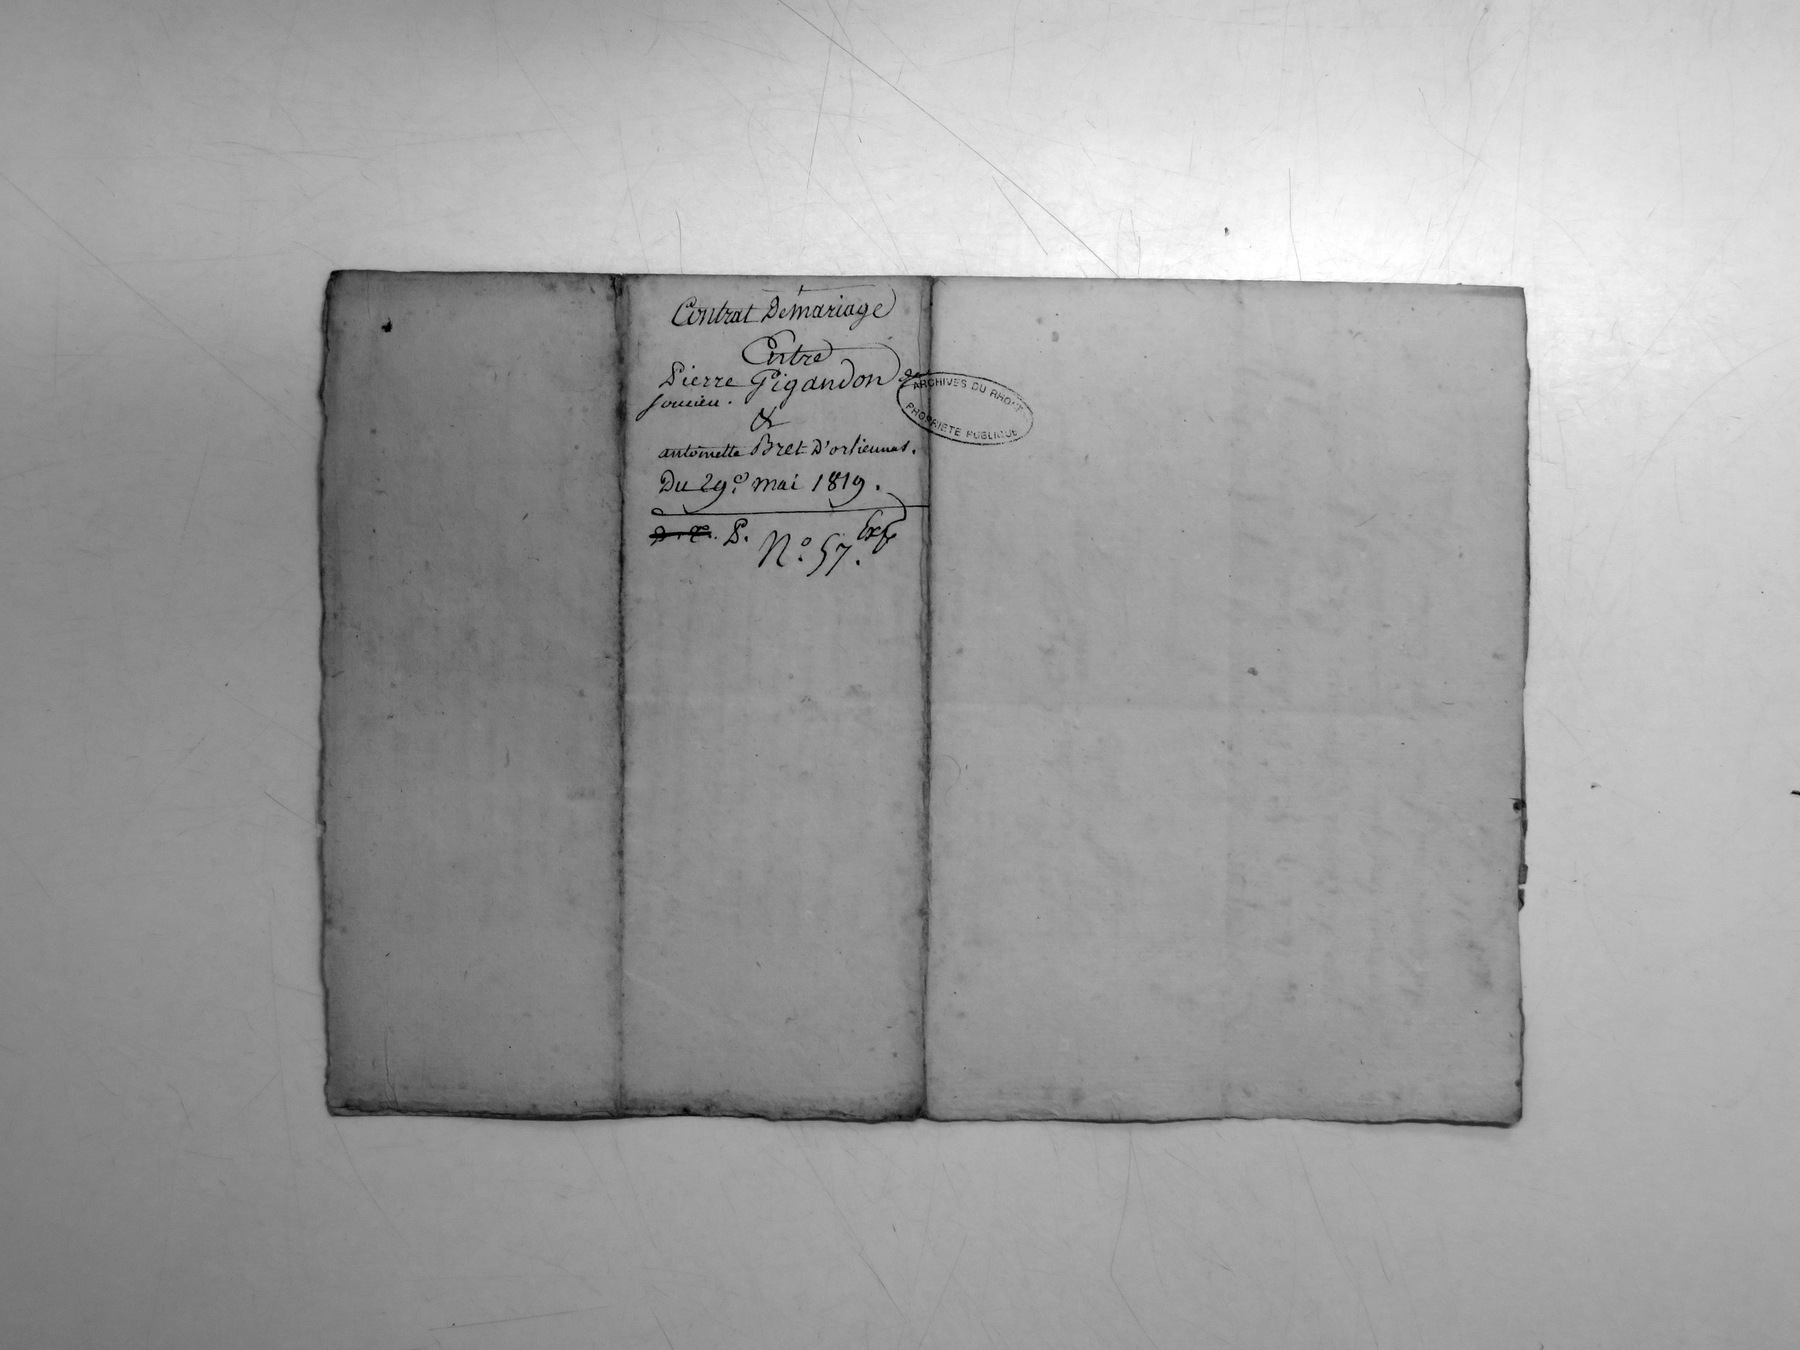 Contrat De mariage
Entre
Pierre Gigandon de
soucieu.
&
antoinette Bret D'orliennas.
Du 29e. mai 1819.
P. Exp
No. 57.
ARCHIVES DU RHONE
PROPRIÉTÉ PUBLIQUE